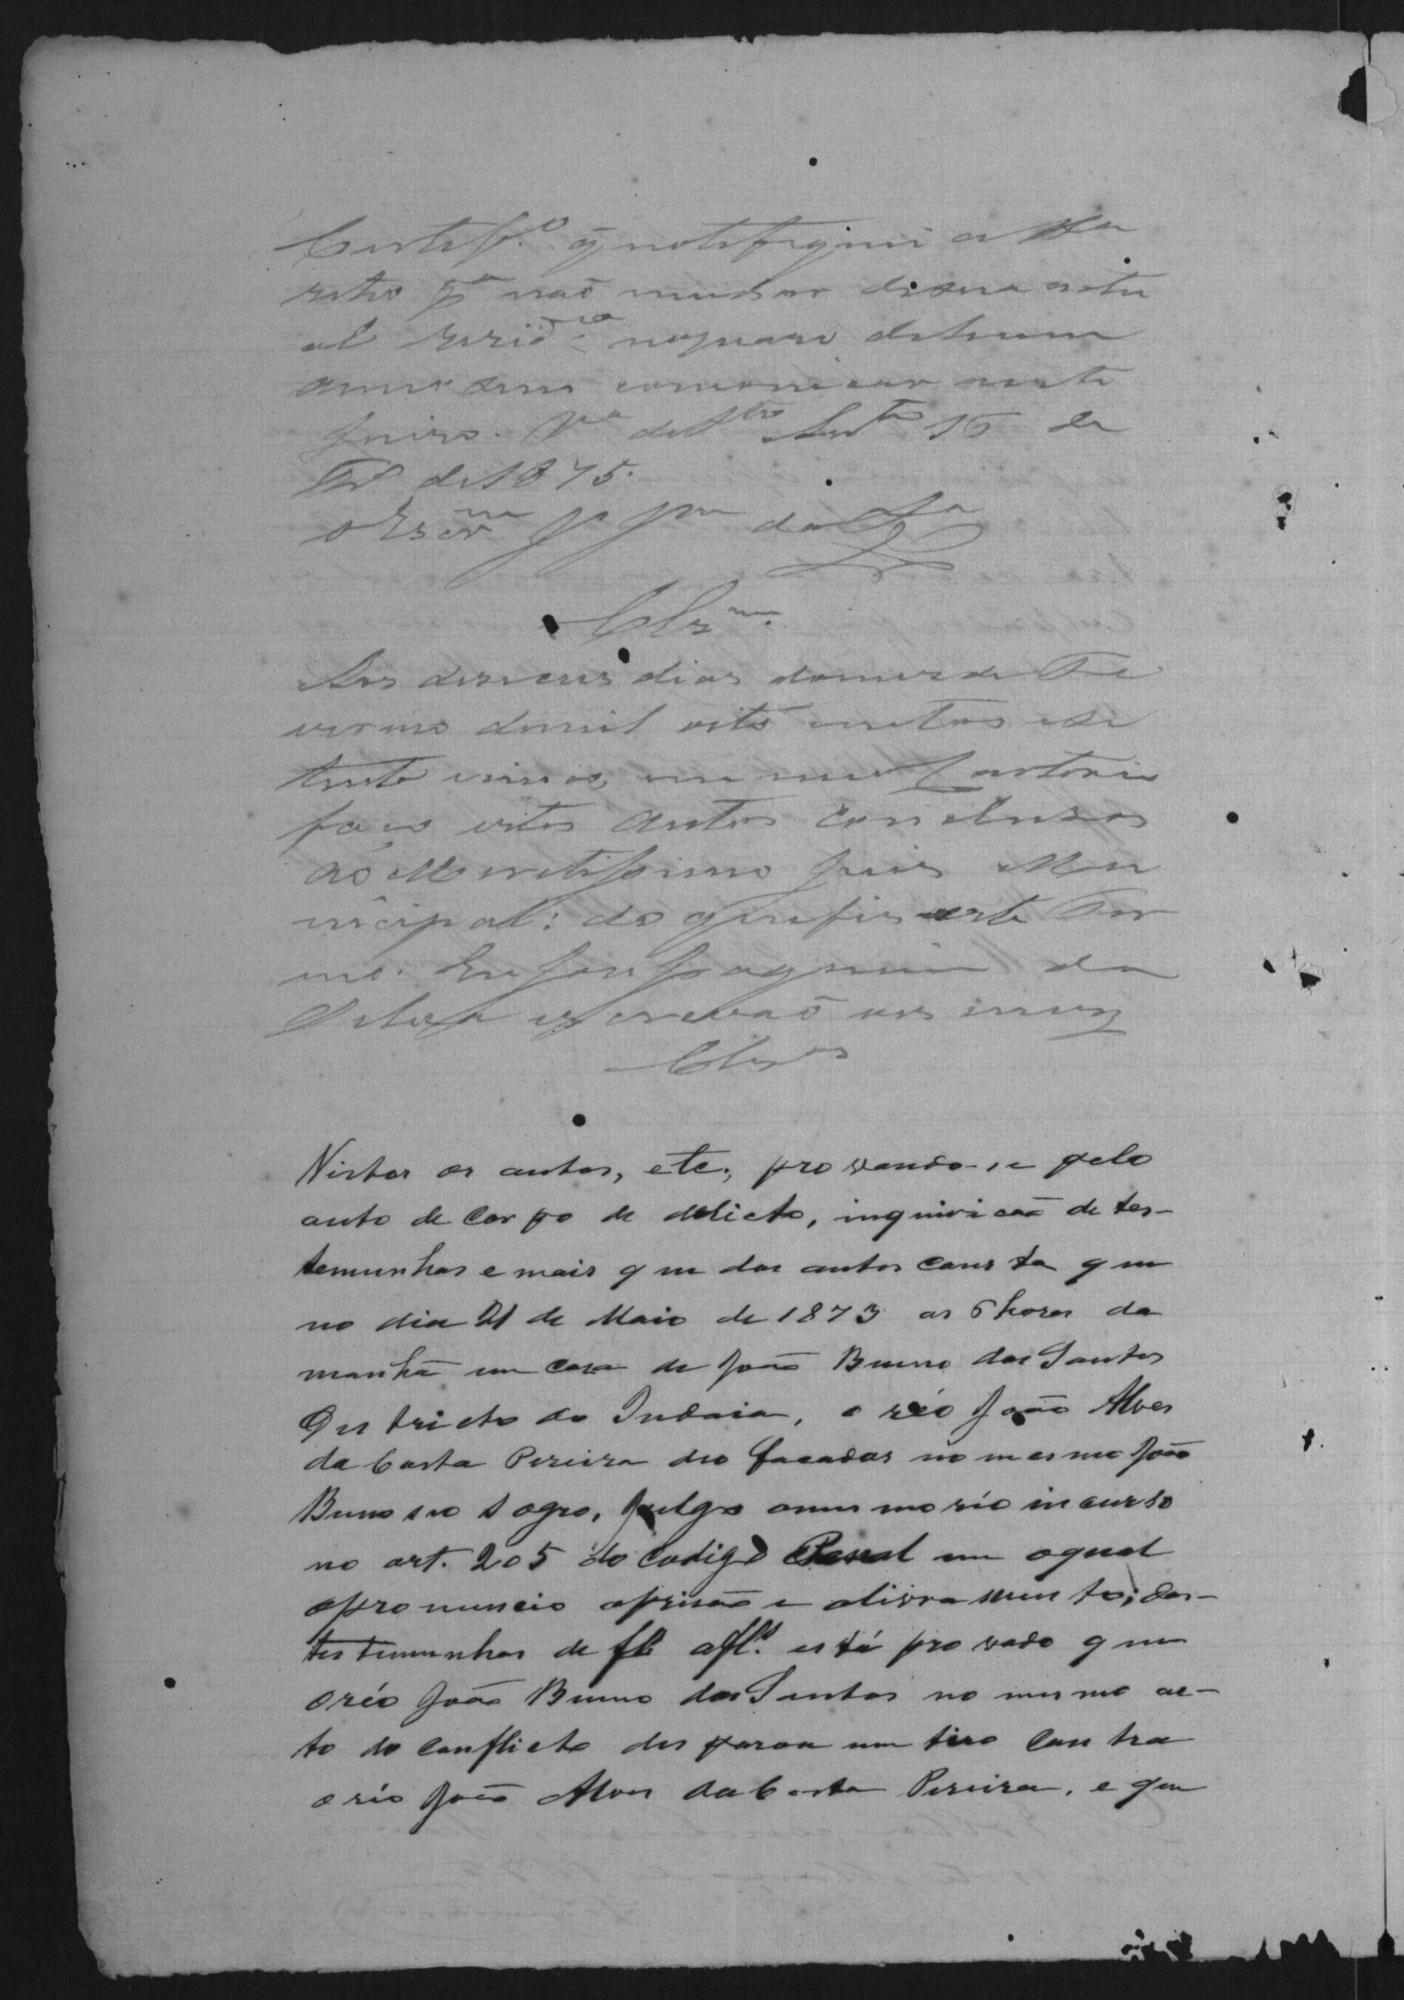 Certef.º q̃ notefiquei a tta
retro pª naõ mudar desua actu
al resid.ca noprazo dehum
anno sem comonicar neste
Juiso. Vª de Stº Antº 16 de
Fº de 1875.
o Escrm Jº Jm da Sª
Clzm.
Aos deseceis dias domes de Fe
vereiro demil oito centos ese
tenta e cinco, em meu Cartorio
faço estes autos concluzos
ao Meretissimo Juis Mu
nicipal: do que fis este Ter
mo. Eu Jose Joaquim da
Silva escrevaõ que escrevy
Clzos
Vistos os autos, etc, provando-se pelo
auto de corpo de delicto, inquirição de tes-
temunhas e mais que dos autos consta que
no dia 21 de Maio de 1873 as 6 horas da
manhã em casa de João Bueno dos Santos
Districto do Indaia, o réo João Alves
da Costa Pereira deo facadas no mesmo João
Bueno seo sogro, julgo omesmo réo incurso
no art. 205 do Codigo Penal em oqual
opronuncio aprisão e alivramento; das
testemunhas de fl afl. está provado que
oréo João Bueno dos Santos no mesmo ac-
to do conflicto desparou um tiro contra
o réo João Alves da Costa Pereira, e que